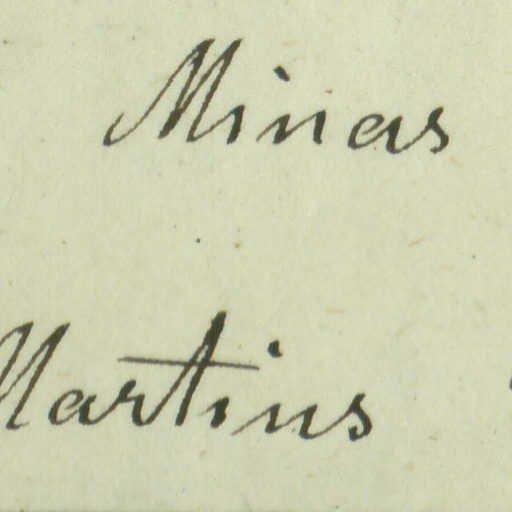 Minas
Martius